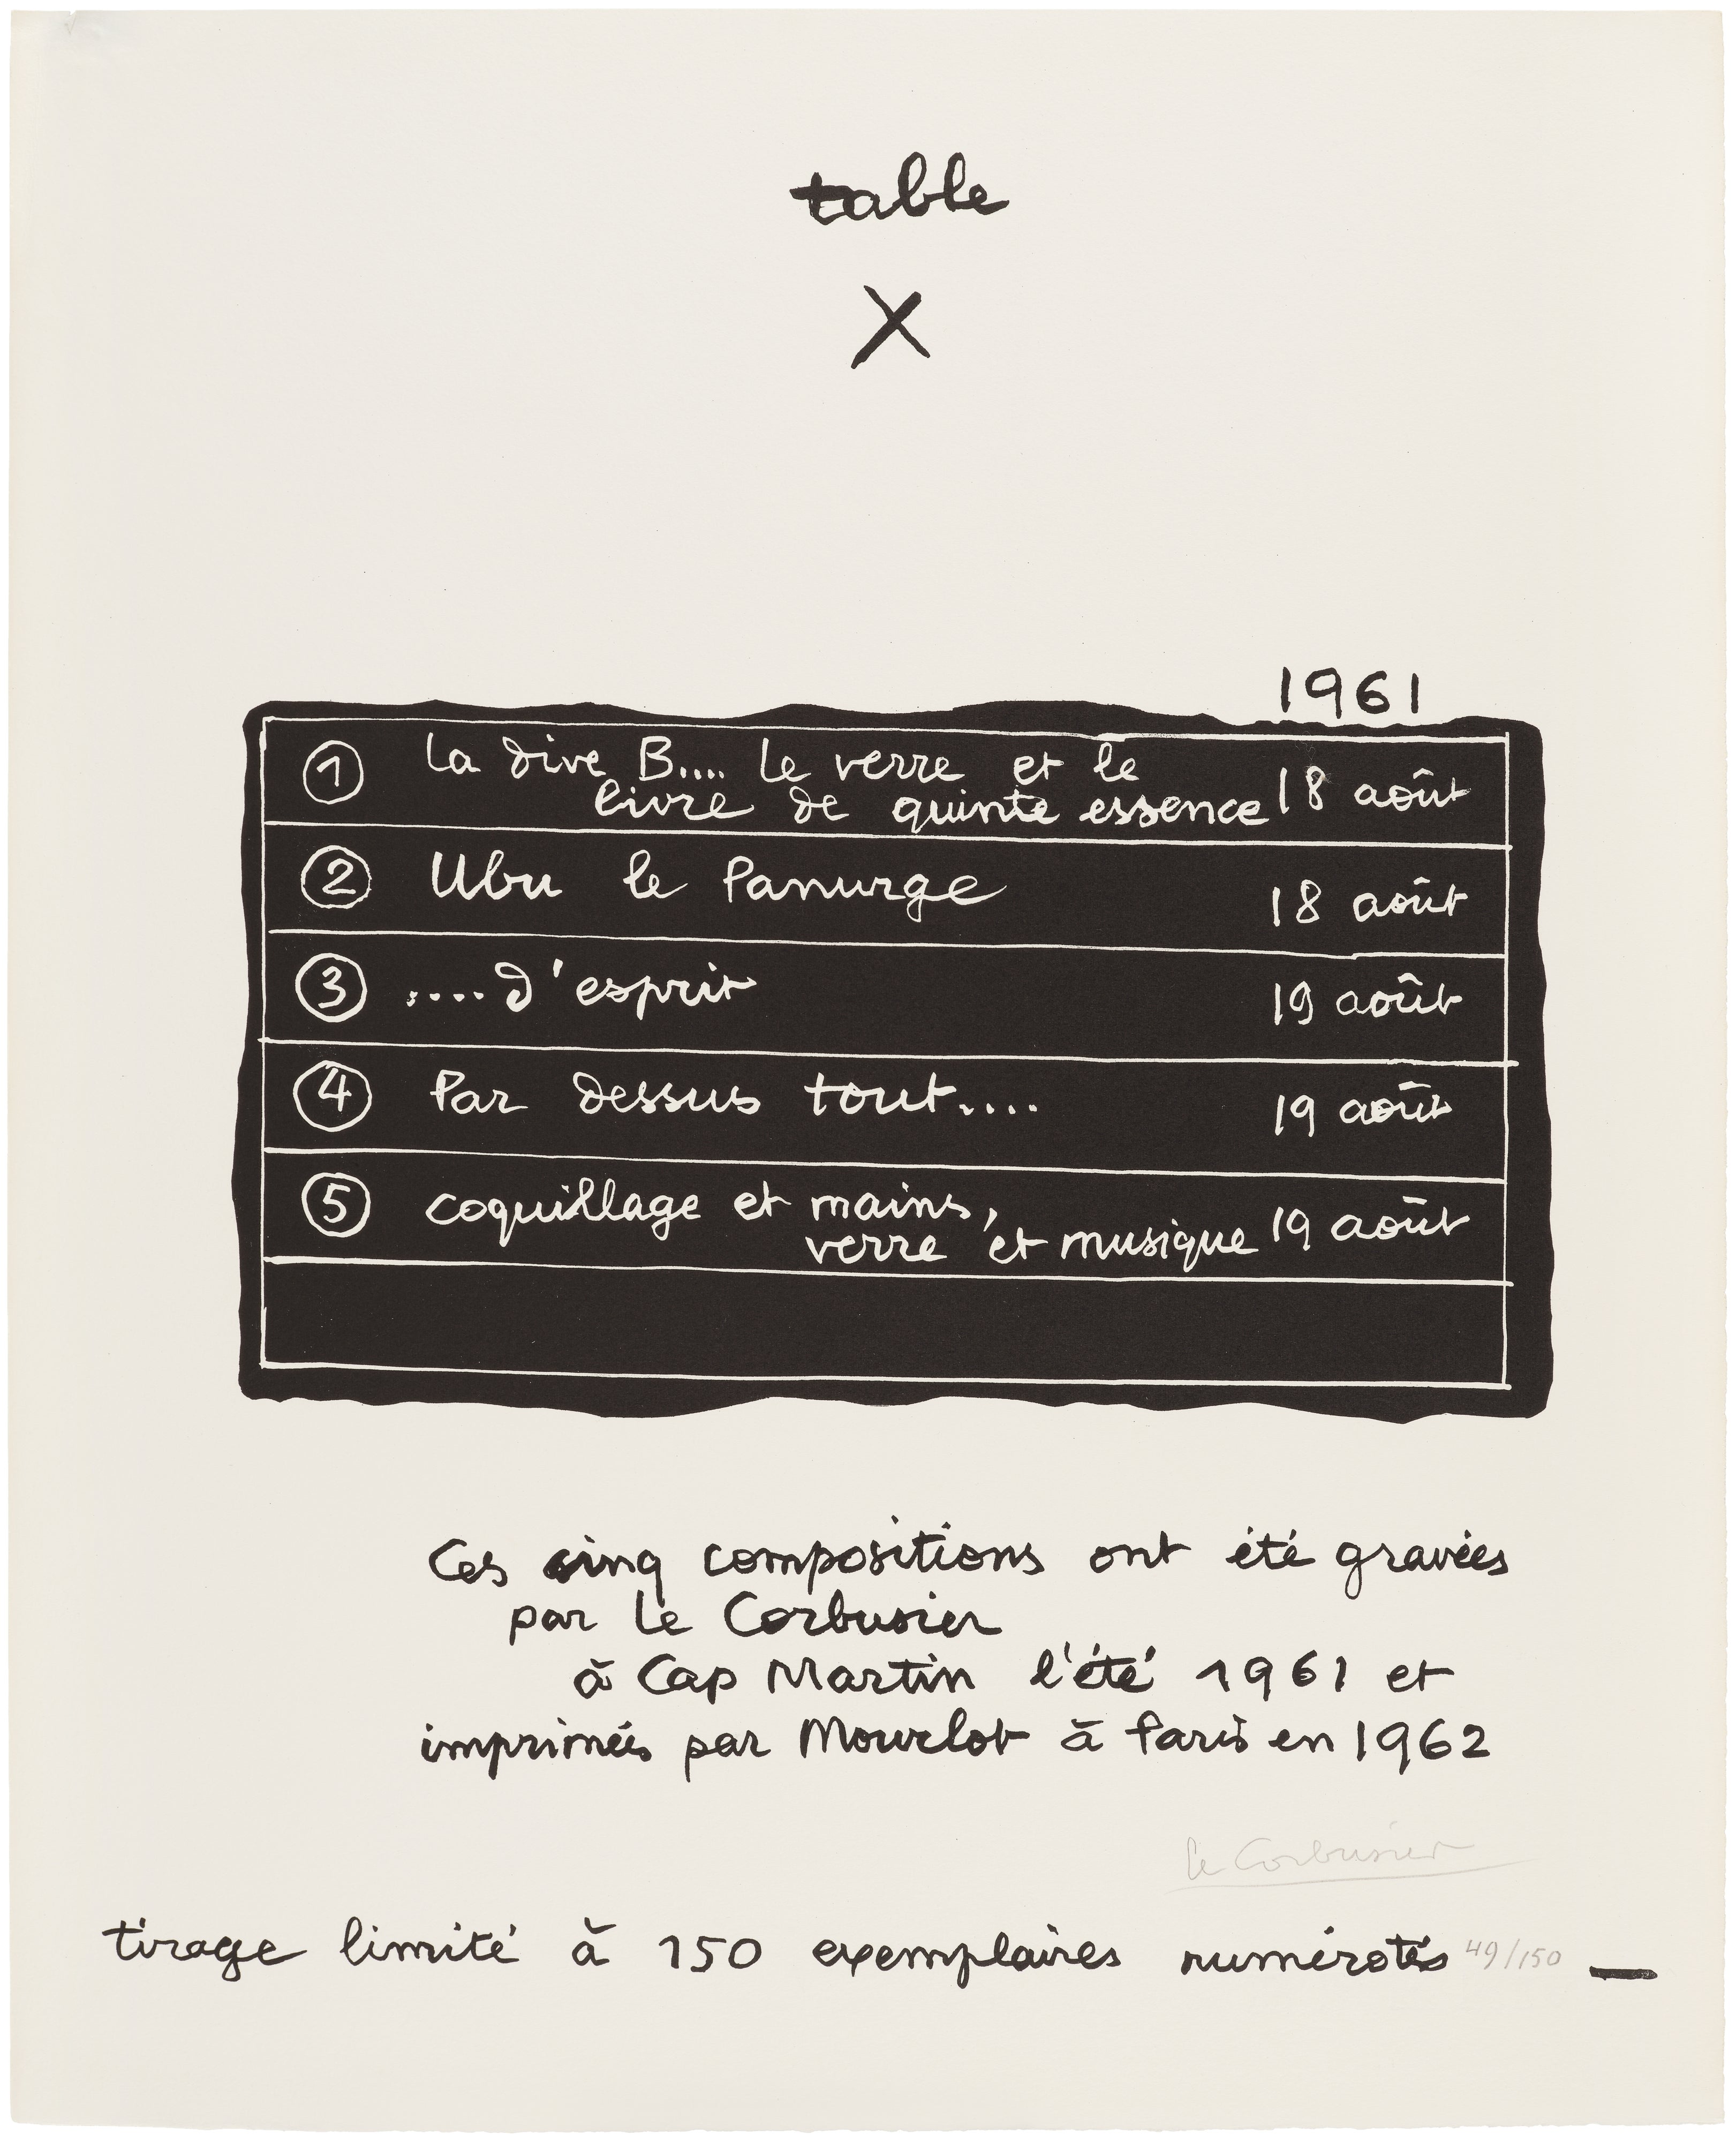 table
X
1961
① la dive B.... le verre et le
livre de quinte essence 18 août
② Ubu le Panurge 18 août
③ ....d'esprit 19 août
④ Par dessus tout.... 19 août
⑤ coquillage et mains,
verre et musique 19 août
Ces cinq compositions ont été gravées
par Le Corbusier
à Cap Martin l'été 1961 et
imprimées par Mourlot à Paris en 1962
Le Corbusier
tirage limité à 150 exemplaires numérotés 49/150 —